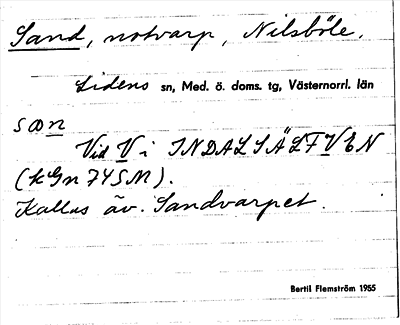 Sand, notvarp, Nilsböle.
Lidens sn, Med. ö. doms. tg, Västernorrl. län
Vid V i INDALSÄLFVEN
Kallas äv. Sandvarpet.
Bertil Flemström 1955